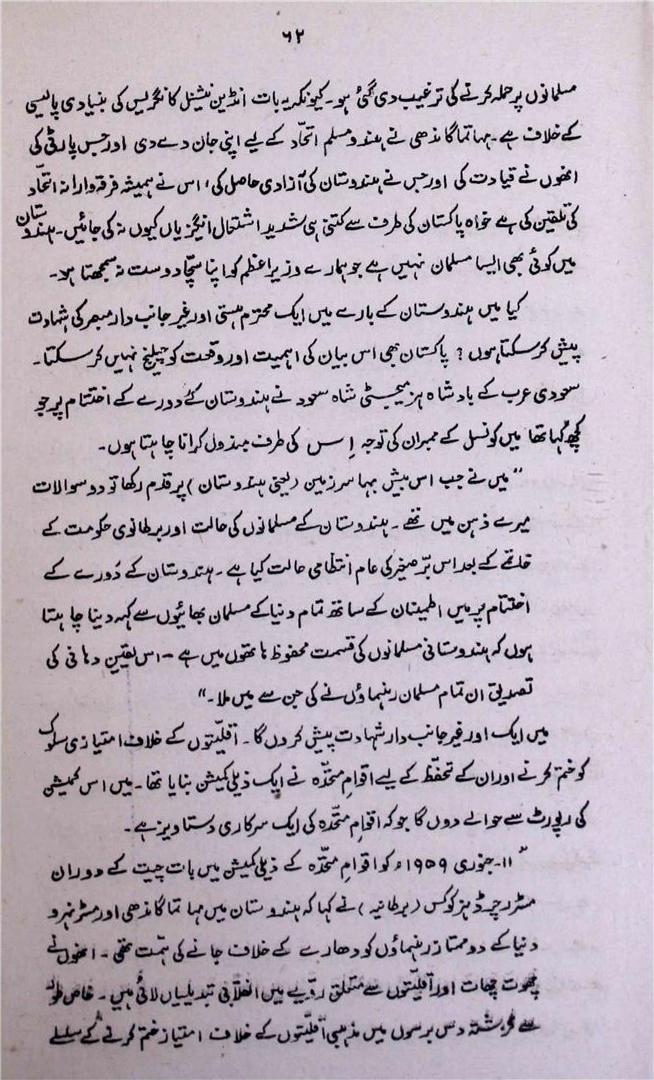 ۶۲
مسلمانوں پر حملہ کرنے کی ترغیب دی گئی ہو۔ کیونکہ یہ بات انڈین نیشنل کانگریس کی بنیادی پالیسی
کے خلاف ہے۔ مہاتما گاندھی نے ہندو مسلم اتحاد کے لیے اپنی جان دے دی اور جس پارٹی کی
انھوں نے قیادت کی اور جس نے ہندوستان کی آزادی حاصل کی، اس نے ہمیشہ فرقہ وارانہ اتحاد
کی تلقین کی ہے خواہ پاکستان کی طرف سے کتنی ہی شدید اشتعال انگیزیاں کیوں نہ کی جائیں۔ ہندوستان
میں کوئی بھی ایسا مسلمان نہیں ہے جو ہمارے وزیراعظم کو اپنا سچا دوست نہ سمجھتا ہو۔
کیا میں ہندوستان کے بارے میں ایک محترم ہستی اور غیر جانب دار مبصر کی شہادت
پیش کر سکتا ہوں؟ پاکستان بھی اس بیان کی اہمیت اور وقعت کو چیلنج نہیں کر سکتا۔
سعودی عرب کے بادشاہ ہز میجسٹی شاہ سعود نے ہندوستان کے دورے کے اختتام پر جو
کچھ کہا تھا میں کونسل کے ممبران کی توجہ اس کی طرف مبذول کرانا چاہتا ہوں۔
"میں نے جب اس بیش بہا سرزمین (یعنی ہندوستان) پر قدم رکھا تو دو سوالات
میرے ذہن میں تھے۔ ہندوستان کے مسلمانوں کی حالت اور برطانوی حکومت کے
خاتمے کے بعد اس برّصغیر کی عام انتظامی حالت کیا ہے۔ ہندوستان کے دورے کے
اختتام پر میں اطمینان کے ساتھ تمام دنیا کے مسلمان بھائیوں سے کہہ دینا چاہتا
ہوں کہ ہندوستانی مسلمانوں کی قسمت محفوظ ہاتھوں میں ہے۔ اس یقین دہانی کی
تصدیق ان تمام مسلمان رہنماؤں نے کی جن سے میں ملا۔"
میں ایک اور غیر جانب دار شہادت پیش کروں گا۔ اقلیتوں کے خلاف امتیازی سلوک
کو ختم کرنے اور ان کے تحفظ کے لیے اقوامِ متحدہ نے ایک ذیلی کمیشن بنایا تھا۔ میں اس کمیشن
کی رپورٹ سے حوالے دوں گا جو کہ اقوامِ متحدہ کی ایک سرکاری دستاویز ہے۔
"۱۱۔ جنوری ۱۹۵۹ء کو اقوامِ متحدہ کے ذیلی کمیشن میں بات چیت کے دوران
مسٹر رچرڈ ہز کوکس (برطانیہ) نے کہا کہ ہندوستان میں مہاتما گاندھی اور مسٹر نہرو
دنیا کے دو ممتاز رہنماؤں کو دھارے کے خلاف جانے کی ہمت تھی۔ انھوں نے
چھوت چھات اور اقلیتوں سے متعلق رویے میں انقلابی تبدیلیاں لائی ہیں۔ خاص طور
سے گزشتہ دس برسوں میں مذہبی اقلیتوں کے خلاف امتیاز ختم کرنے کے سلسلے